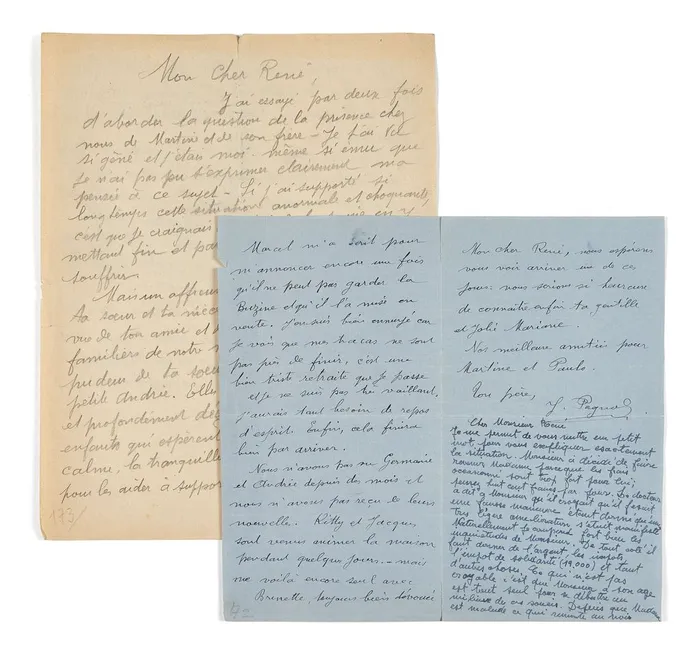 Mon Cher René,
J'ai essayé par deux fois
d'aborder la question de la présence chez
nous de Martine et de son frère - Je t'ai vu
si gêné et j'étais moi-même si ému que
je n'ai pas pu t'exprimer clairement ma
pensée à ce sujet - Si j'ai supporté si
longtemps cette situation anormale et choquante,
c'est que je craignais
mettant fin et par
souffrir.
Mais un officier
ta sœur et ta nièce
vue de ton amie et d
familiers de notre
pudeur de ta sœur
petite Andrée. Elle
et profondément dég
enfants qui espéraient
calme, la tranquill
pour les aider à suppor
173/
Marcel m'a écrit pour
m'annoncer encore une fois
qu'il ne peut pas garder la
Buzine et qu'il la mise en
vente. J'en suis bien ennuyé car
je vois que mes tracas ne sont
pas près de finir, c'est une
bien triste retraite que je passe
et je ne suis pas très vaillant.
j'aurais tant besoin de repos
d'esprit. Enfin, cela finira
bien par arriver.
Nous n'avons pas vu Germaine
et Andrée depuis des mois et
nous n'avons pas reçu de leurs
nouvelles. Kitty et Jacques
sont venus animer la maison
pendant quelques jours - mais
me voilà encore seul avec
Brunette, toujours bien dévouée
172
Mon cher René, nous espérons
vous voir arriver un de ces
jours. nous serions si heureux
de connaître enfin ta gentille
et jolie Marione.
Nos meilleures amitiés pour
Martine et Paulo.
Ton père,
J. Pagnol
Cher Monsieur René
Je me permet de vous mettre un petit
mot pour vous expliquer exactement
la situation. Monsieur a décidé de faire
ramener Madame parceque les frais
occasionné sont trop fort pour lui;
pensez huit cent francs par jour. Le docteur
a dit à Monsieur qu'il croyait qu'il faisait
une fausse manœuvre étant donné qu'une
très légère amélioration s'était manifesté
Naturellement je comprend fort bien les
inquiétudes de Monsieur. De tout coté il
faut donner de l'argent, les impots
l'impot de solidarité (19.000) et tout
d'autres choses. Ce qui n'est pas
croyable c'est que Monsieur à son age
est tout seul pour se débattre au
milieu de ces soucis. Depuis que Madame
est malade ce qui remonte au mois